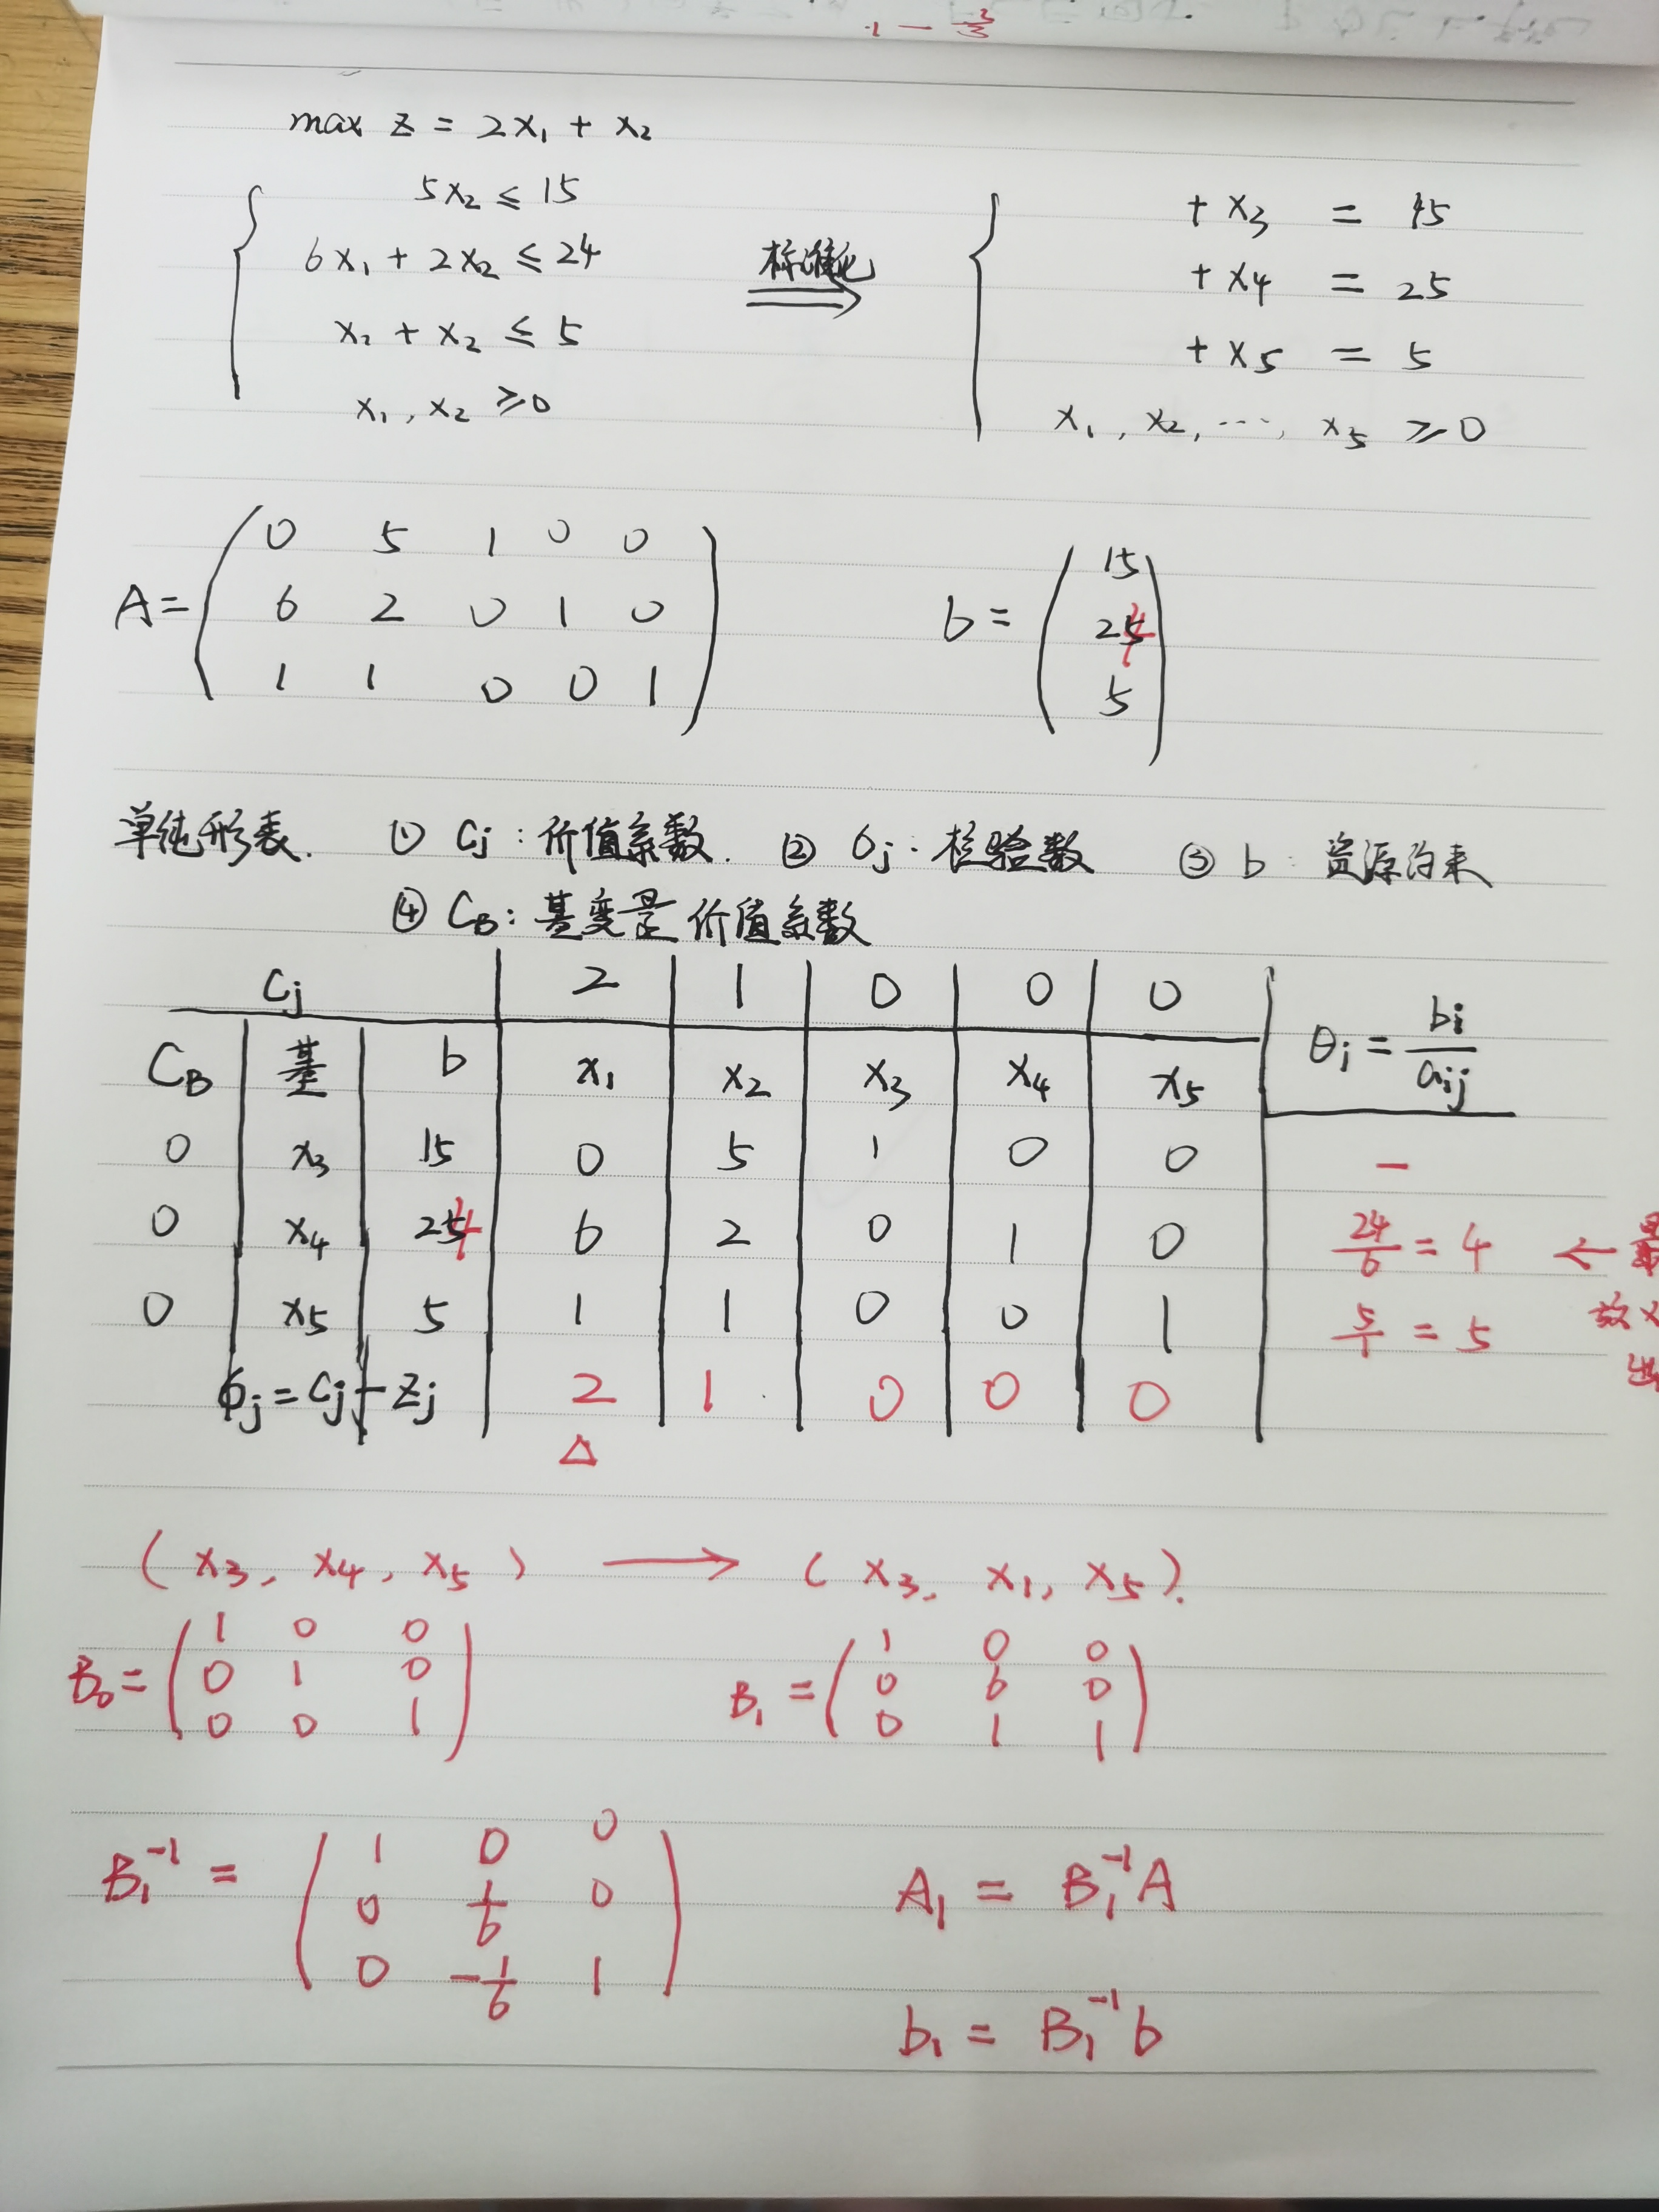 max z = 2x₁ + x₂
5x₂ ≤ 15
6x₁ + 2x₂ ≤ 24
x₂ + x₂ ≤ 5
x₁, x₂ ≥ 0
标准化 ⟹
+ x₃ = 15
+ x₄ = 25
+ x₅ = 5
x₁, x₂, ⋯, x₅ ≥ 0
A = ( 0 5 1 0 0
6 2 0 1 0
1 1 0 0 1 )
b = ( 15
24
5 )
单纯形表. ① Cj: 价值系数. ② σj: 检验数 ③ b: 资源约束
④ CB: 基变量价值系数
Cj 2 1 0 0 0 θi = bi/aij
CB 基 b x₁ x₂ x₃ x₄ x₅
0 x₃ 15 0 5 1 0 0 —
0 x₄ 24 6 2 0 1 0 24/6 = 4 ← 最
0 x₅ 5 1 1 0 0 1 5/1 = 5 故x
σj = Cj - Zj 2 1 0 0 0 出
△
(x₃, x₄, x₅) ⟶ (x₃, x₁, x₅).
B₀ = ( 1 0 0
0 1 0
0 0 1 )
B₁ = ( 1 0 0
0 6 0
0 1 1 )
B₁⁻¹ = ( 1 0 0
0 1/6 0
0 -1/6 1 )
A₁ = B₁⁻¹A
b₁ = B₁⁻¹b